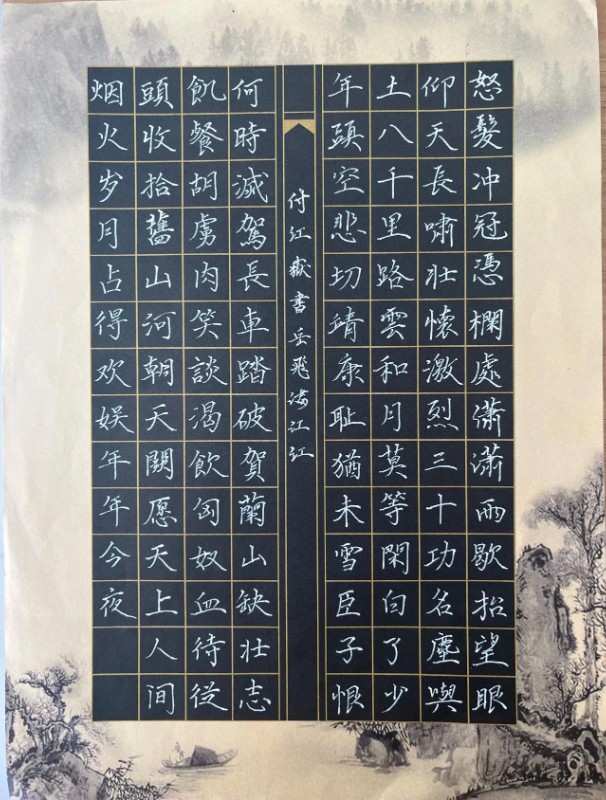 怒髮冲冠憑欄處瀟瀟雨歇抬望眼
仰天長嘯壯懷激烈三十功名塵與
土八千里路雲和月莫等閑白了少
年頭空悲切靖康耻猶未雪臣子恨
付江嶽書岳飛满江红
何時滅駕長車踏破賀蘭山缺壯志
飢餐胡虜肉笑談渴飲匈奴血待從
頭收拾舊山河朝天闕愿天上人间
烟火岁月占得欢娱年年今夜